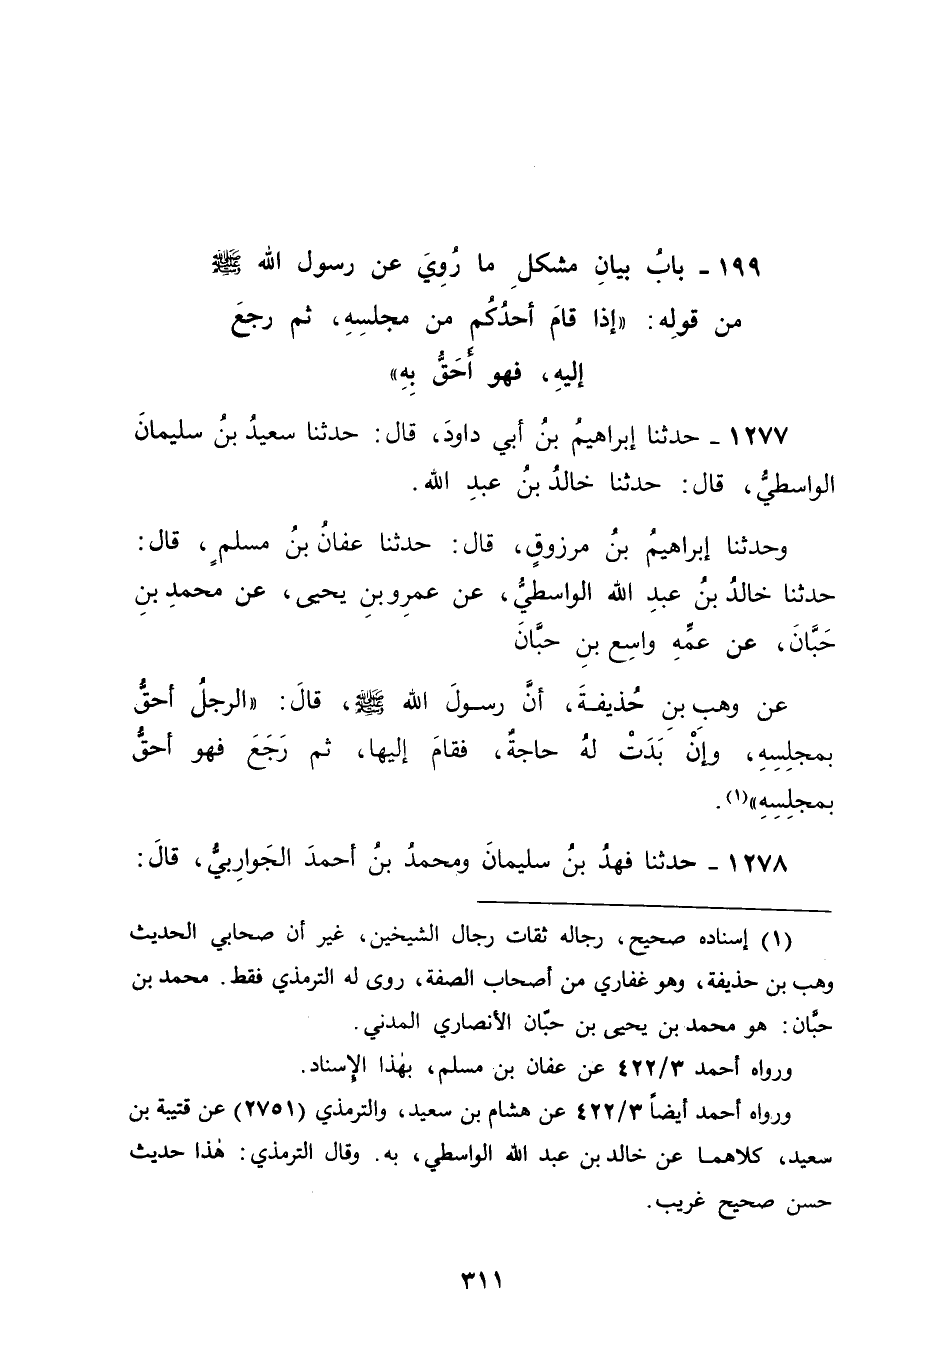 ١٩٩ ـ بابُ بيانِ مشكلِ ما رُوِيَ عن رسول الله ﷺ
من قولِه: «إذا قامَ أحدُكُم من مجلسِهِ، ثم رجعَ
إليهِ، فهو أَحَقُّ بِهِ»
١٢٧٧ ـ حدثنا إبراهيمُ بنُ أبي داودَ، قال: حدثنا سعيدُ بنُ سليمانَ
الواسطيُّ، قال: حدثنا خالدُ بنُ عبدِ الله.
وحدثنا إبراهيمُ بنُ مرزوقٍ، قال: حدثنا عفانُ بنُ مسلمٍ، قال:
حدثنا خالدُ بنُ عبدِ الله الواسطيُّ، عن عمرِو بنِ يحيى، عن محمدِ بنِ
حَبَّانَ، عن عمِّهِ واسِعِ بنِ حبَّانَ
عن وهبِ بنِ حُذيفةَ، أنَّ رسولَ الله ﷺ، قالَ: «الرجلُ أحقُّ
بمجلِسِهِ، وإنْ بَدَتْ لهُ حاجةٌ، فقامَ إليها، ثم رَجَعَ فهو أحقُّ
بمجلِسِهِ»(١).
١٢٧٨ ـ حدثنا فهدُ بنُ سليمانَ ومحمدُ بنُ أحمدَ الجَواربيُّ، قالَ:
(١) إسناده صحيح، رجاله ثقات رجال الشيخين، غير أن صحابي الحديث
وهب بن حذيفة، وهو غفاري من أصحاب الصفة، روى له الترمذي فقط. محمد بن
حبَّان: هو محمد بن يحيى بن حبّان الأنصاري المدني.
ورواه أحمد ٤٢٢/٣ عن عفان بن مسلم، بهٰذا الإِسناد.
ورواه أحمد أيضاً ٤٢٢/٣ عن هشام بن سعيد، والترمذي (٢٧٥١) عن قتيبة بن
سعيد، كلاهما عن خالد بن عبد الله الواسطي، به. وقال الترمذي: هٰذا حديث
حسن صحيح غريب.
٣١١